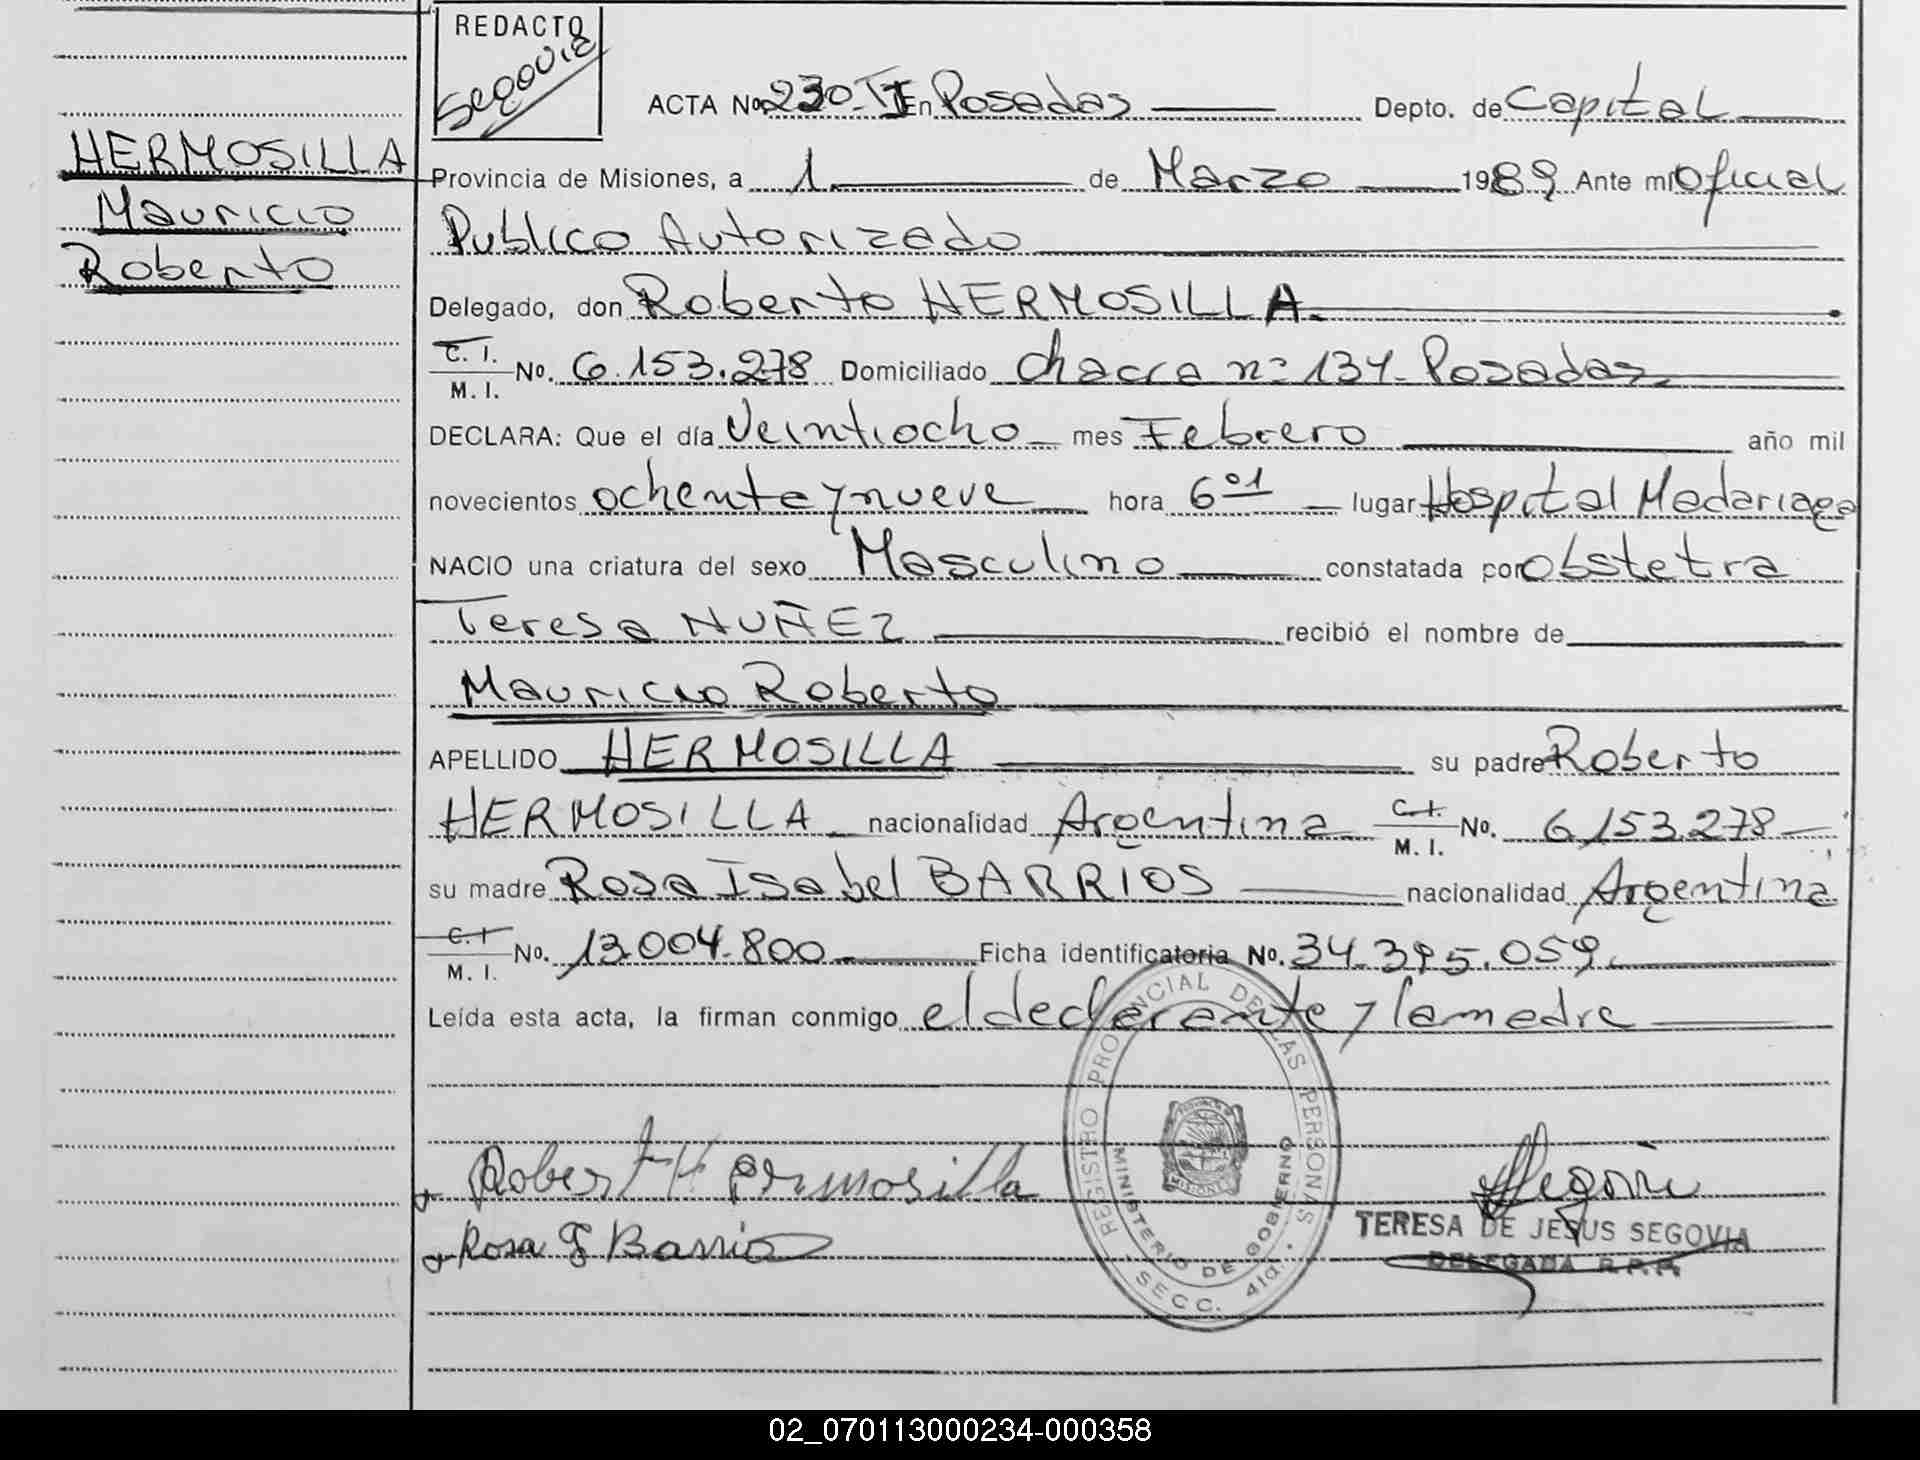 REDACTO
Segovia
HERMOSILLA
Mauricio
Roberto
ACTA No. 230-II En Posadas Depto. de Capital
Provincia de Misiones, a 1 de Marzo 1989 Ante mí Oficial
Publico Autorizado
Delegado, don Roberto HERMOSILLA.
C. I.
M. I. No. 6.153.278 Domiciliado Chacra nº 134- Posadas
DECLARA: Que el día Veintiocho mes Febrero año mil
novecientos ochenta y nueve hora 6 01 lugar Hospital Madariaga
NACIO una criatura del sexo Masculino constatada por Obstetra
Teresa NUÑEZ recibió el nombre de
Mauricio Roberto
APELLIDO HERMOSILLA su padre Roberto
HERMOSILLA nacionalidad Argentina C. I. M. I. No. 6.153.278
su madre Rosa Isabel BARRIOS nacionalidad Argentina
C. I.
M. I. No. 13.004.800 Ficha identificatoria No. 34.395.059.
Leída esta acta, la firman conmigo el declarante y la madre
Robert Hermosilla
Rosa I Barrios
REGISTRO PROVINCIAL DE LAS PERSONAS
MINISTERIO DE GOBIERNO
SECC. 4ta.
PROVINCIA DE
MISIONES
Segovia
TERESA DE JESUS SEGOVIA
DELEGADA R.P.P.
02_070113000234-000358